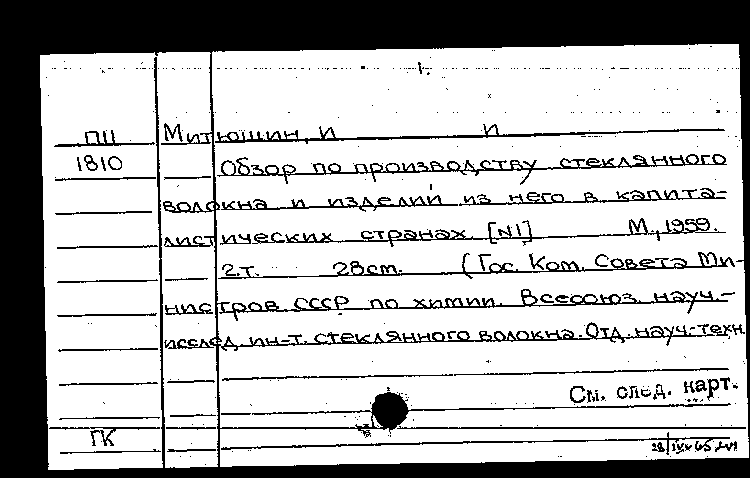 1.
ПЦ Митюшин, И И
1810 Обзор по производству стеклянного
волокна и изделий из него в капита-
листических странах [№1] М., 1959.
2.т. 28см. (Гос. Ком. Совета Ми-
нистров СССР по химии. Всесоюз. науч.-
исслед. ин-т. стеклянного волокна. Отд. науч.-техн.
См. след. карт.
ГК